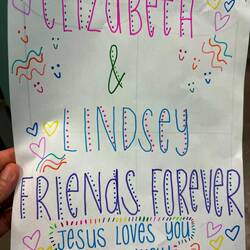 ELIZABETH
&
LINDSEY
FRIENDS FOREVER
JESUS LOVES YOU